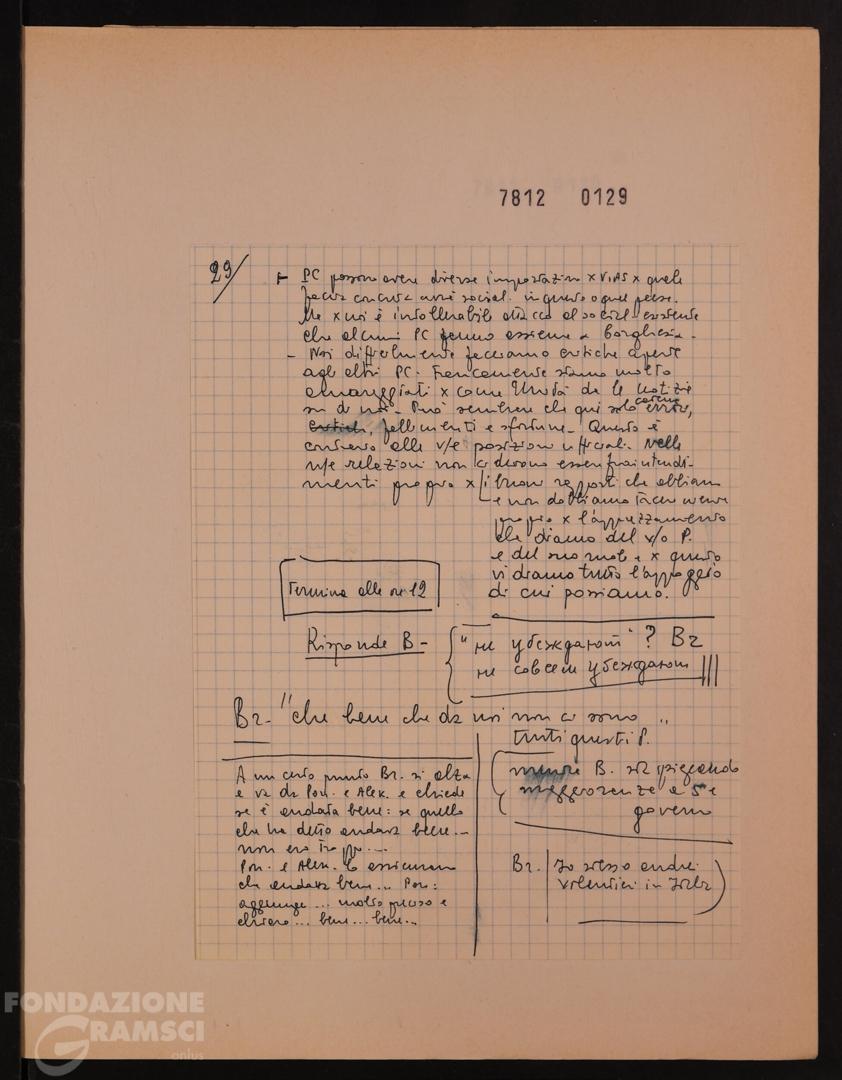 7812 0129
29/
- PC possono avere diverse impostazioni x vias x quale
faccia concreta avrà social. in questo o quel paese.
Ma x noi è intollerabile attacco al social. esistente
che alcuni PC fanno assieme a borghesia -
- Noi difficilmente facciamo critiche aperte
agli altri PC. Francamente siamo molto
amareggiati x come Unità dà le notizie
su di noi - Può sembrare che qui solo carenze, errori,
fallimenti e sfortune - Questo è
contrario alle v/e posizioni ufficiali. Nelle
n/e relazioni non ci devono essere fraintendi-
menti proprio x i buoni rapporti che abbiamo
e non dobbiamo tacere
proprio x l'apprezzamento
che diamo del v/o P.
e del suo ruolo e x questo
vi diamo tutto l'appoggio
di cui possiamo.
Termina alle ore 12
Risponde B -
"не убеждают" ? Br
не совсем убеждают |||
Br - "che bene che da noi non ci sono
tutti questi P."
A un certo punto Br. si alza
e va da Pon. e Alex. e chiede
se è andata bene: se quello
che ha detto andava bene...
non era troppo...
Pon. e Alex. lo assicurano
che andava bene... Pon:
aggiunge ... molto preciso e
chiaro... bene... bene...
mentre B. sta spiegando
maggioranze a 5 e
governo
Br. | Io stesso andrei
volentieri in Italia
FONDAZIONE
GRAMSCI
onlus